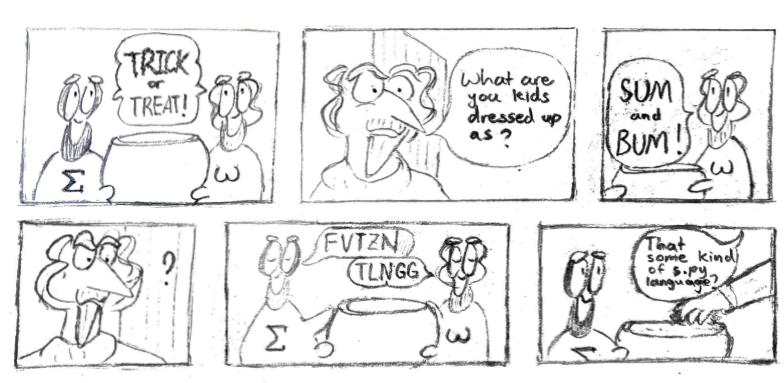 TRICK
or
TREAT!
Σ
ω
What are
you kids
dressed up
as?
SUM
and
BUM!
ω
?
FVTZN
TLNGG
Σ
ω
That
some kind
of s.py
language?
Σ